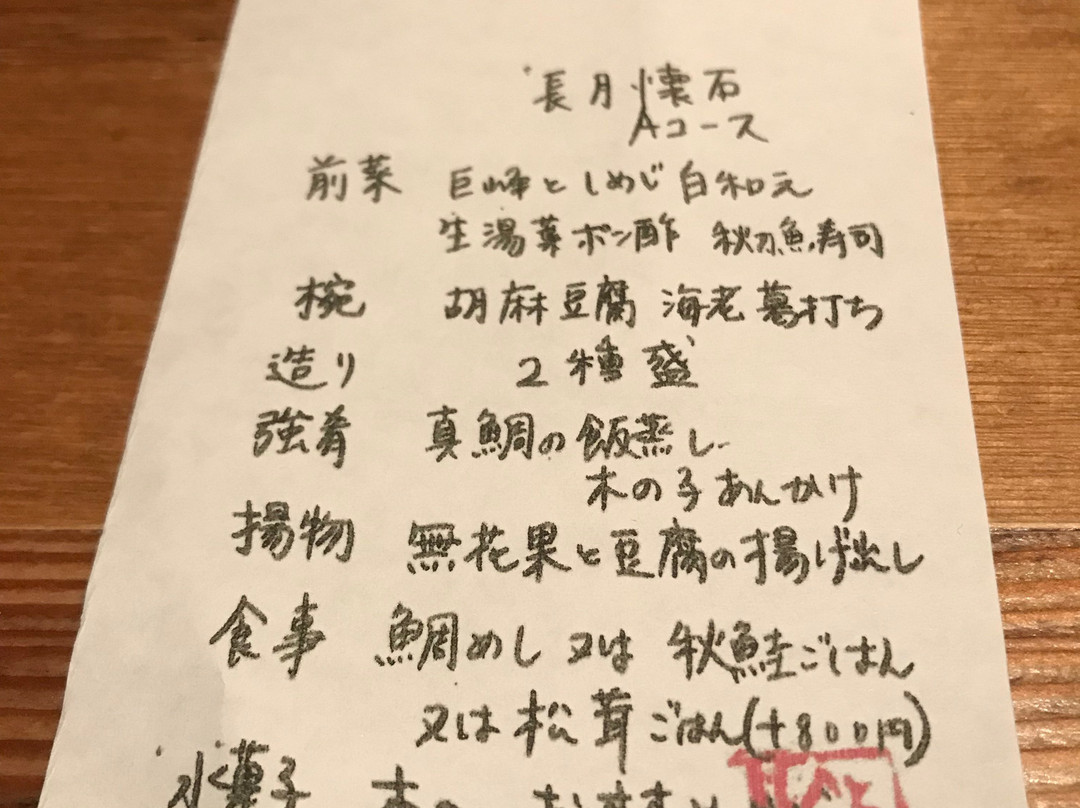 長月懐石
Aコース
前菜 巨峰としめじ白和え
生湯葉ポン酢 秋刀魚寿司
椀 胡麻豆腐 海老葛打ち
造り 2種盛
強肴 真鯛の飯蒸し
木の子あんかけ
揚物 無花果と豆腐の揚げ出し
食事 鯛めし 又は 秋鮭ごはん
又は松茸ごはん(+800円)
水菓子